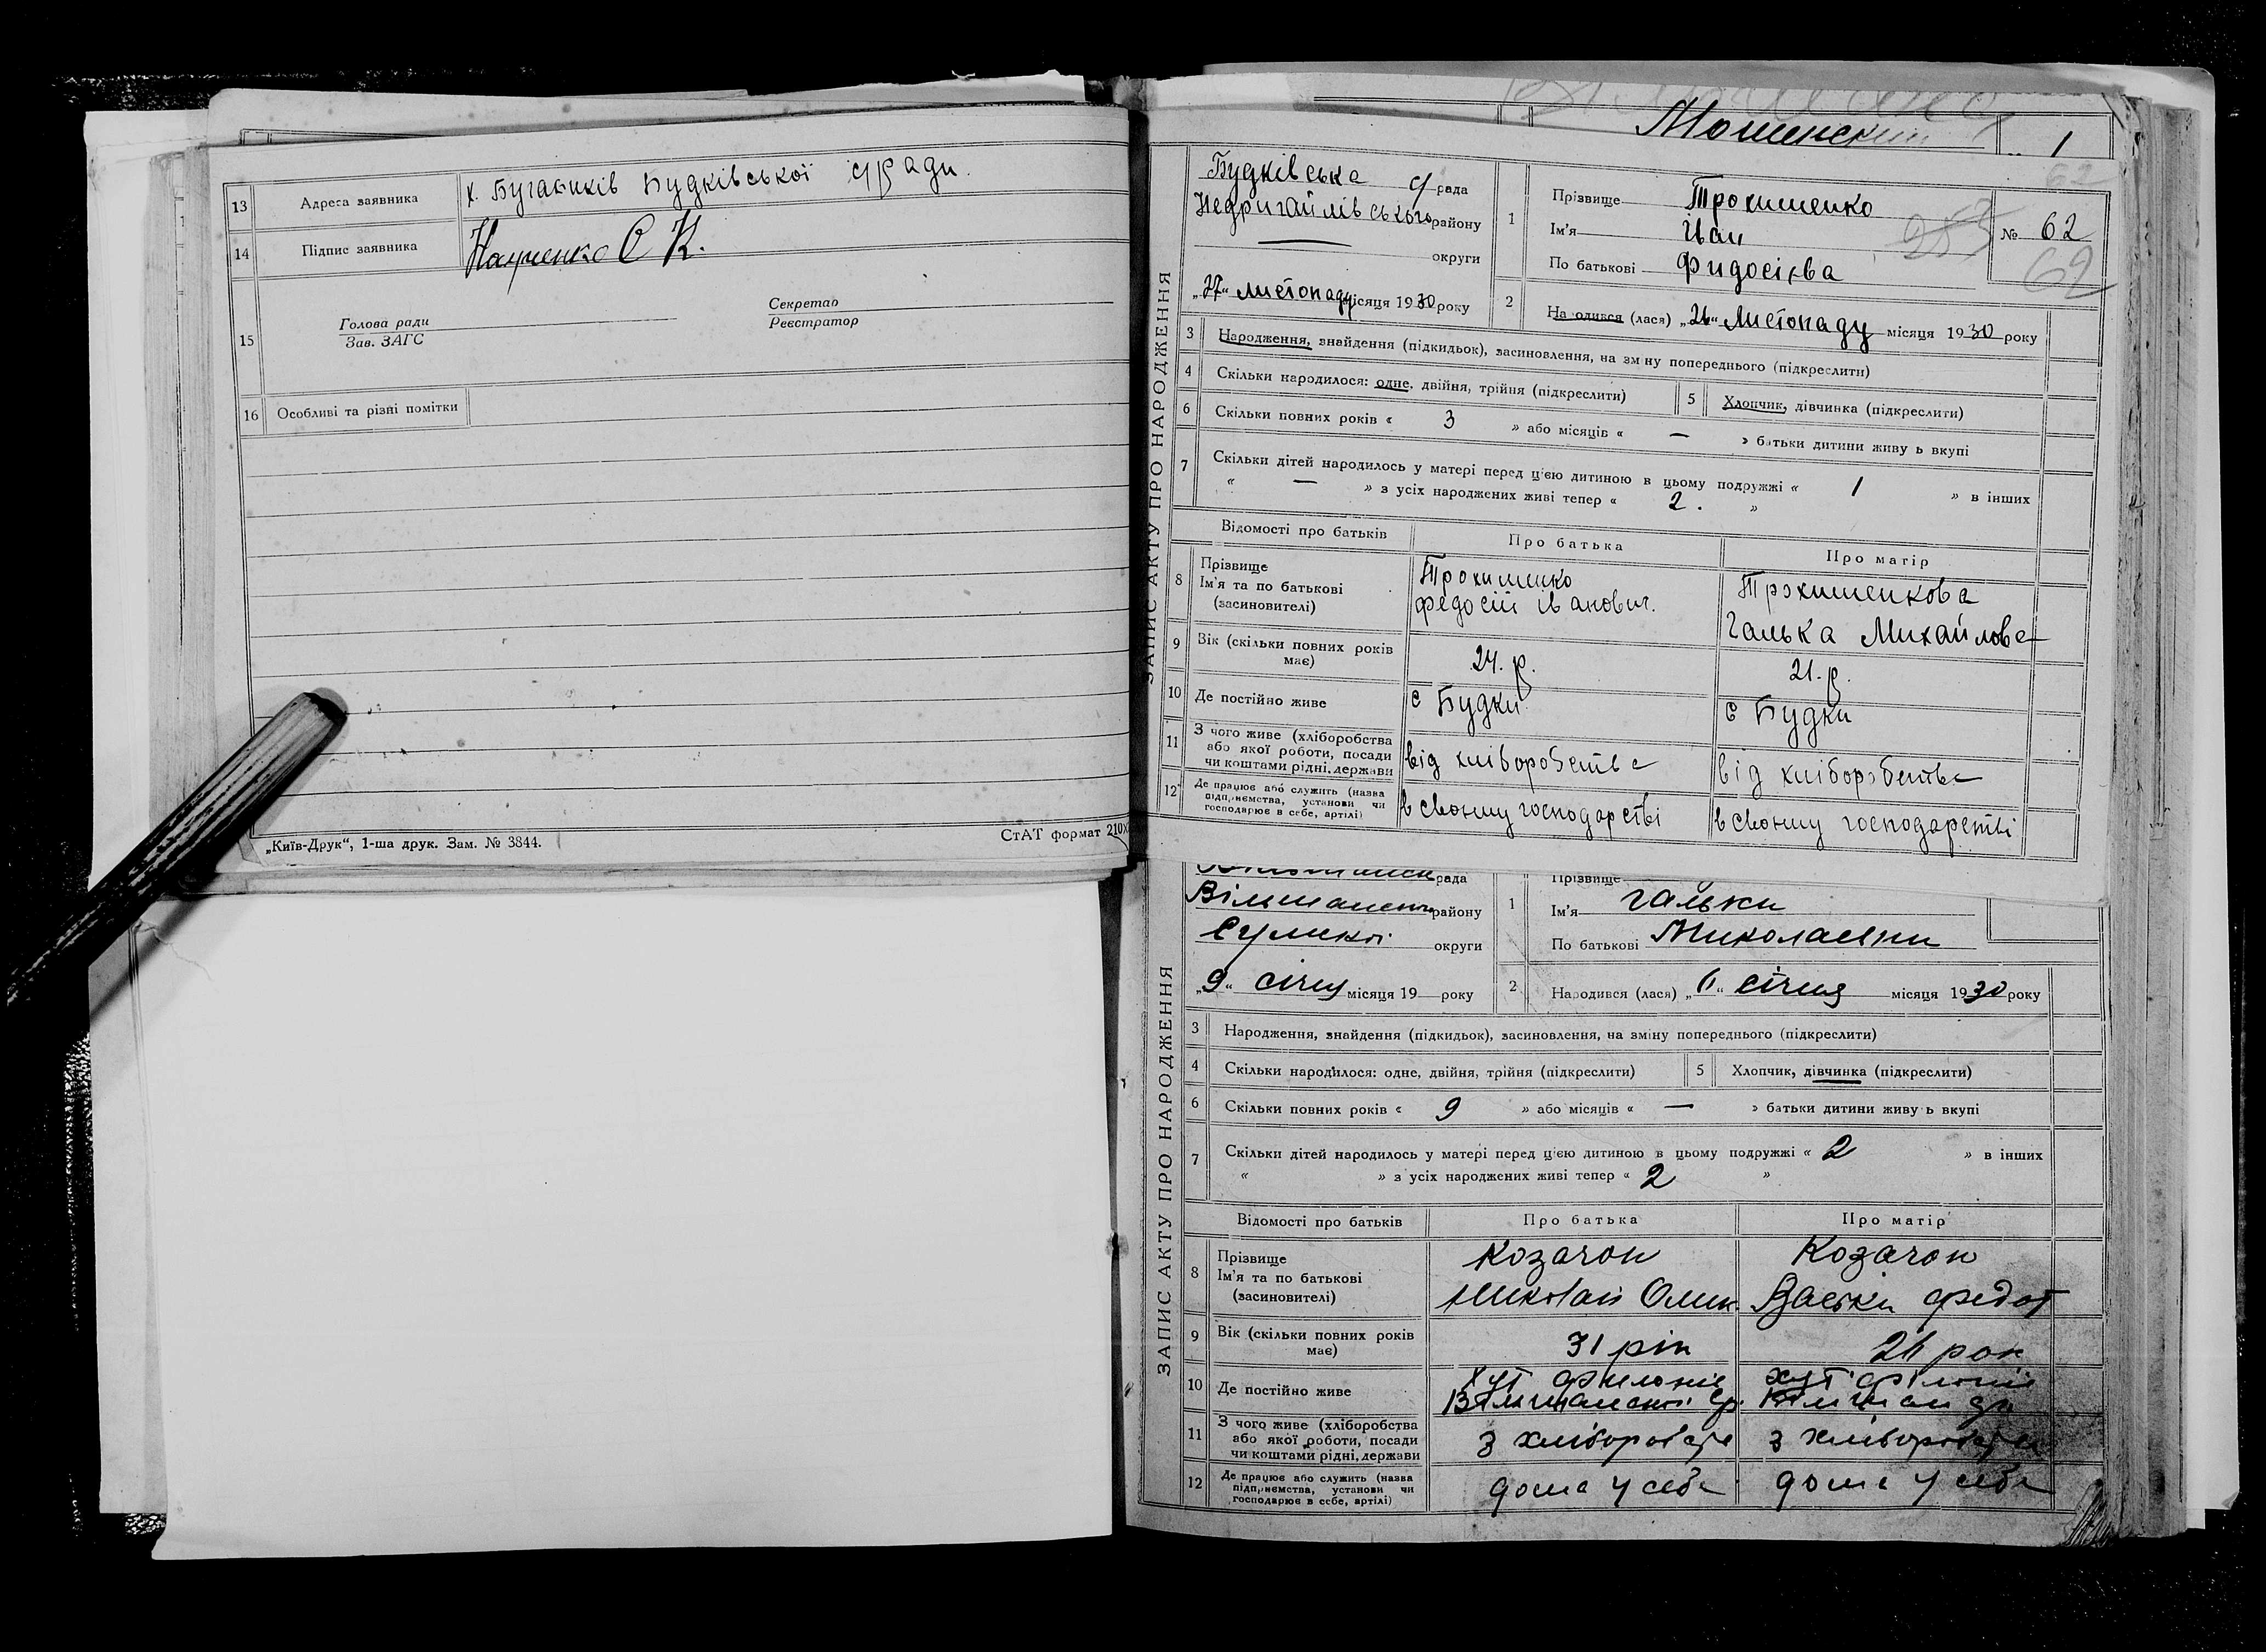 13 Адреса заявника х. Бугаєнків Будківської с/ради.
14 Підпис заявника С К.
15 Голова ради
Зав. ЗАГС
Секретар
Реєстратор
16 Особливі та різні помітки
„Київ-Друк“, 1-ша друк. Зам. № 3844.
СтАТ формат 210
1
62
ЗАПИС АКТУ ПРО НАРОДЖЕННЯ
Будківська с/рада
Недригайлівського району
округи
„27“ листопаду місяця 1930 року
1 Прізвище Трохименко
Ім'я Іван
По батькові Фидосієва
№ 62
62
253
2 Народився (лася) „26“ Листопаду місяця 1930 року
3 Народження, знайдення (підкидьок), засиновлення, на зміну попереднього (підкреслити)
4 Скільки народилося: одне, двійня, трійня (підкреслити)
5 Хлопчик, дівчинка (підкреслити)
6 Скільки повних років « 3 » або місяців « — » батьки дитини живуть вкупі
7 Скільки дітей народилось у матері перед цією дитиною в цьому подружжі « 1 » в інших
« — » з усіх народжених живі тепер « 2. »
Відомості про батьків Про батька Про матір
8 Прізвище
Ім'я та по батькові
(засиновителі)
Трохименко
федосій іванович.
Трохименкова
Галька Михайлова
9 Вік (скільки повних років
має)
24. р.
21. р.
10 Де постійно живе с Будки с Будки
11 З чого живе (хліборобства
або якої роботи, посади
чи коштами рідні, держави
від хліборобства
від хліборобства
12 Де працює або служить (назва
підприємства, установи чи
господарює в себе, артілі)
в своєму господарстві
в своєму господарстві
ЗАПИС АКТУ ПРО НАРОДЖЕННЯ
рада
району
Сумської округи
„9“ січня місяця 19 року
1 Прізвище
Ім'я Гальки
По батькові Миколаєвни
2 Народився (лася) січня місяця 1930 року
3 Народження, знайдення (підкидьок), засиновлення, на зміну попереднього (підкреслити)
4 Скільки народилося: одне, двійня, трійня (підкреслити)
5 Хлопчик, дівчинка (підкреслити)
6 Скільки повних років « 9 » або місяців « — » батьки дитини живуть вкупі
7 Скільки дітей народилось у матері перед цією дитиною в цьому подружжі « 2 » в інших
« » з усіх народжених живі тепер « 2 »
Відомості про батьків Про батька Про матір
8 Прізвище
Ім'я та по батькові
(засиновителі)
Козачок
Миколай
Козачок
Васька федот
9 Вік (скільки повних років
має)
31 рік
26 рок
10 Де постійно живе
хут
хут
11 З чого живе (хліборобства
або якої роботи, посади
чи коштами рідні, держави
з
з
12 Де працює або служить (назва
підприємства, установи чи
господарює в себе, артілі)
дома у себе
дома у себе